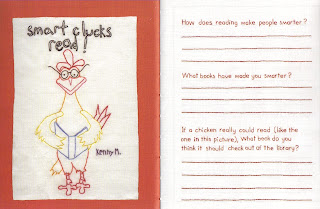 smart clucks
read!
Kenny M.
How does reading make people smarter?
What books have made you smarter?
If a chicken really could read (like the
one in this picture), what book do you
think it should check out of the library?